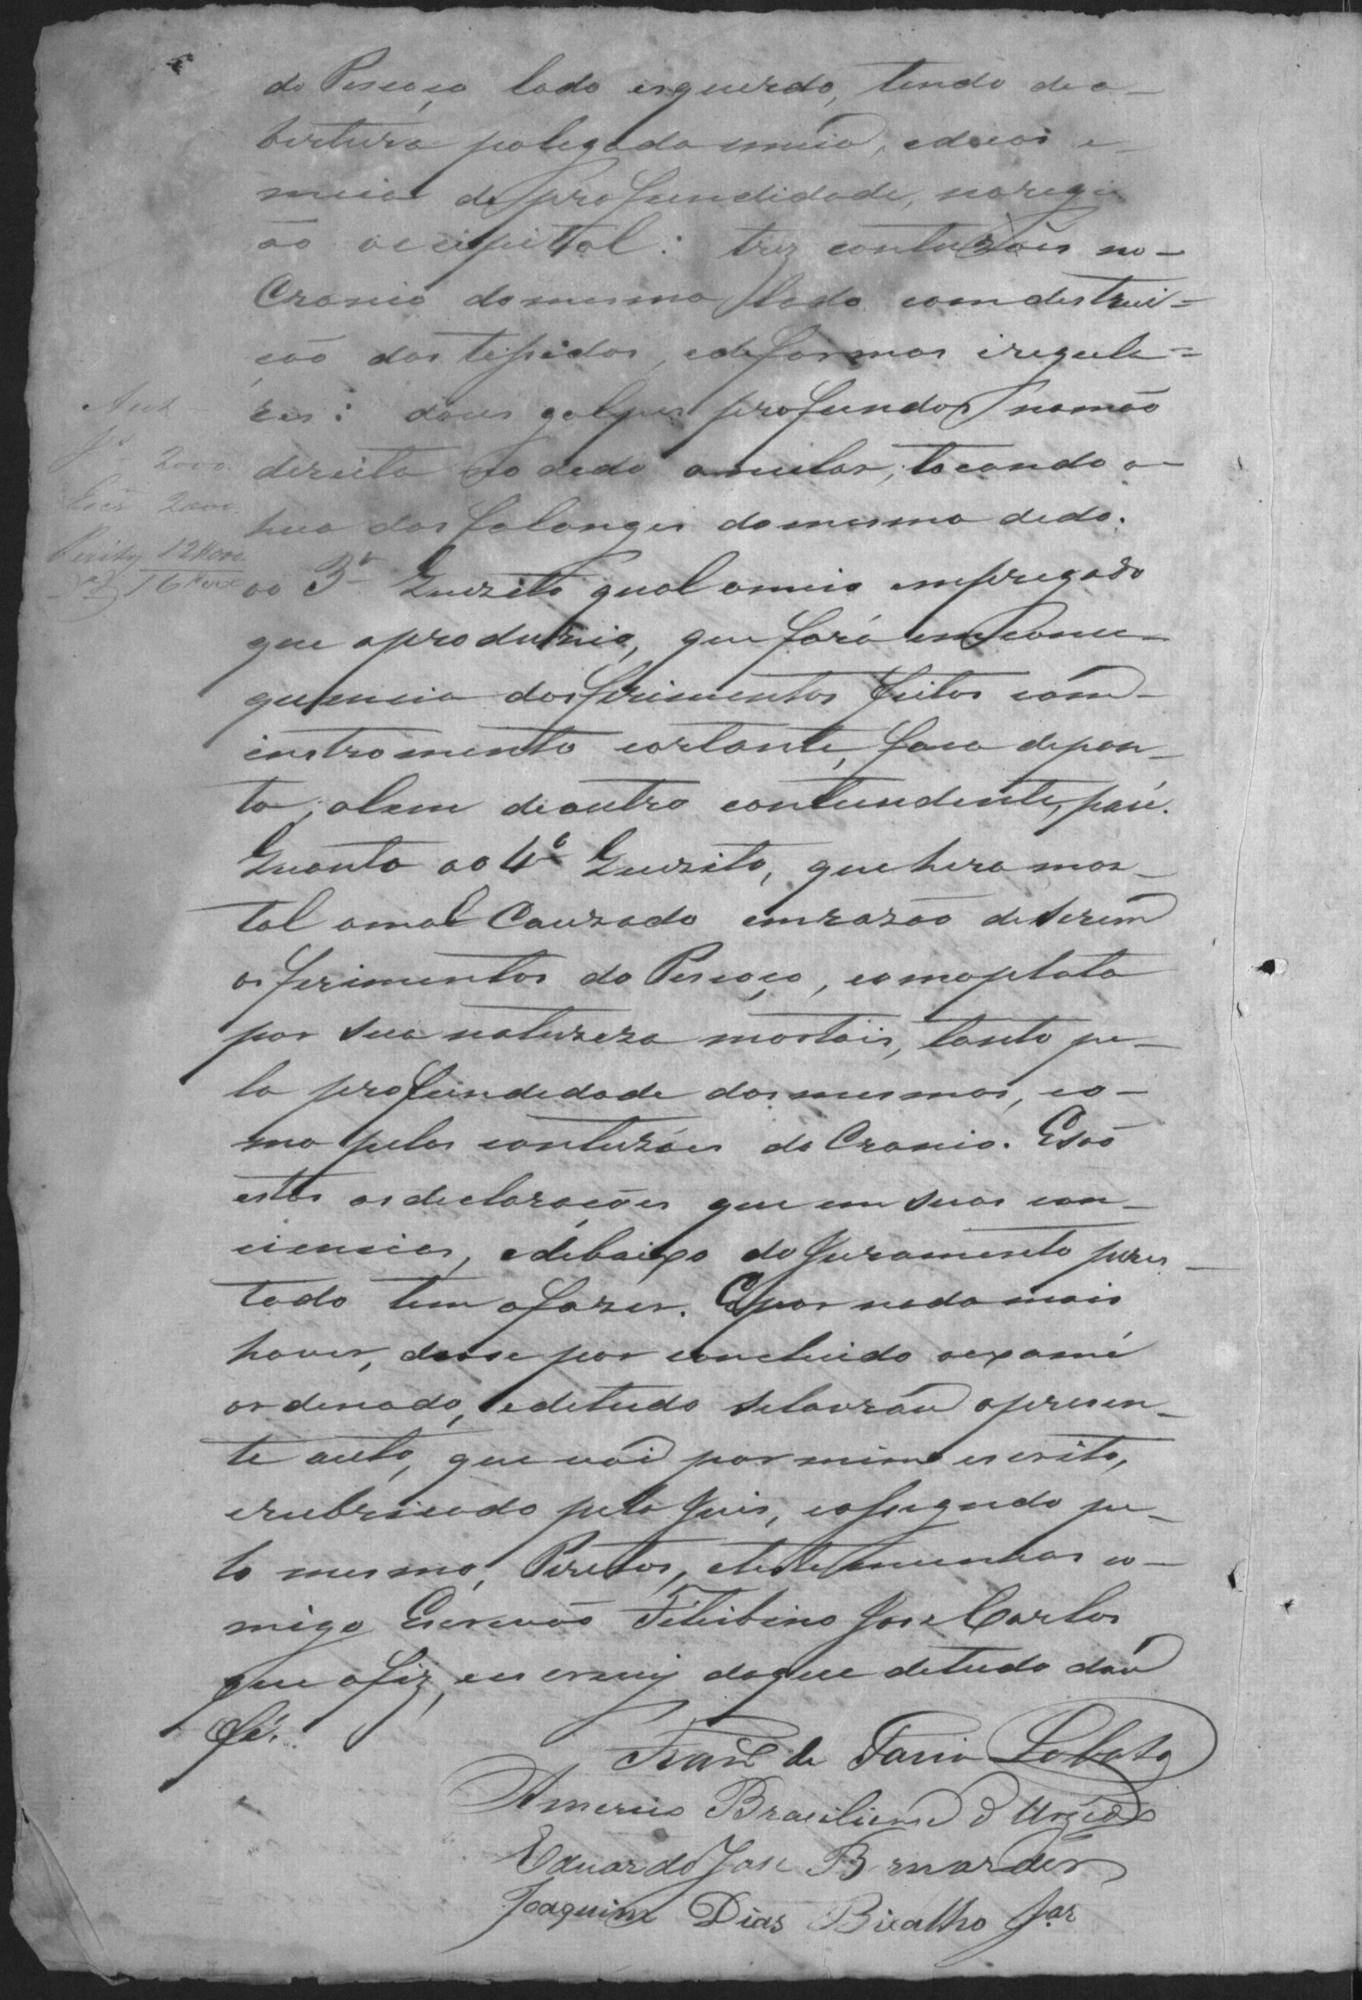 do Pescoço lado esquerdo, tendo de a-
bertura polegada meia, e duas e
meia de profundidade, na regi
ão occipital: trez contuzões no-
Cranio do mesmo lado com destrui=
ção dos tessidos, e de formas iregula=
res: dous golpes profundos na mão
direita no dedo anular, tocando a-
hua das falanges do mesmo dedo.
Aut
Jz 2000.
Escr. 2000.
Peritos 12#000
Rs 16#000
ao 3º Quezito qual o meio empregado
que a produzio, que fora em conse-
quencia dos ferimentos feitos com
instromento cortante, faca de pon-
ta, alem de outro contundente, pau.
Quanto ao 4º Quezito, que hera mor-
tal o mal Cauzado em razão de serem
os ferimentos do Pescoço, e omoplata
por sua natureza mortais, tanto pe-
la profundedade dos mesmos, co-
mo pelas contuzões do Cranio. E são
estas as declarações que em suas con-
ciencias, e debaixo do Juramento pres-
tado tem a fazer. E por nada mais
haver, deose por concluido o exame
ordenado, e de tudo se lavrou o presen-
te auto, que vai por mim escrito,
e rubricado pelo Juis, e assignado pe-
lo mesmo, Peretos, e testemunhas co-
migo Escrevão Felisbino Jose Carlos
que o fiz, e escrevy do que de tudo dou
fé.
Franco de Faria Lobato
Americo Brasiliense d'
Eduardo Jose Bernardes
Joaquim Dias Bicalho Jor